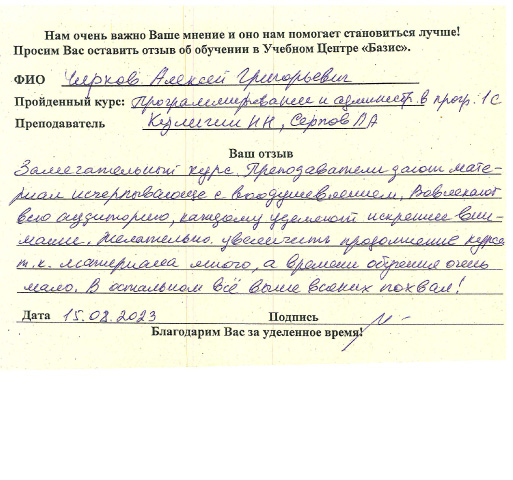 Нам очень важно Ваше мнение и оно нам помогает становиться лучше!
Просим Вас оставить отзыв об обучении в Учебном Центре «Базис».
ФИО Чирков Алексей Григорьевич
Пройденный курс: Программирование и администр. в прогр. 1С
Преподаватель НН, Серпов ЛА
Ваш отзыв
Замечательный курс. Преподаватели дают мате-
риал исчерпывающе с воодушевлением. Вовлекают
всю аудиторию, каждому уделяют искреннее вни-
мание. Желательно увеличить продолжение курса
т.к. материала много, а времени обучения очень
мало. В остальном всё выше всяких похвал!
Дата 15.08.2023 Подпись
Благодарим Вас за уделенное время!